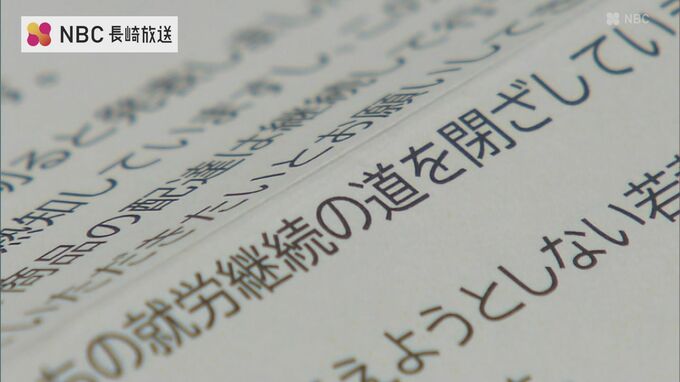 NBC 長崎放送
NBC
ると発表しまし
熟知していますし、
商品の配達は継続して
いただきたいとお願いして
の就労継続の道を閉ざしてい
えようとしない若